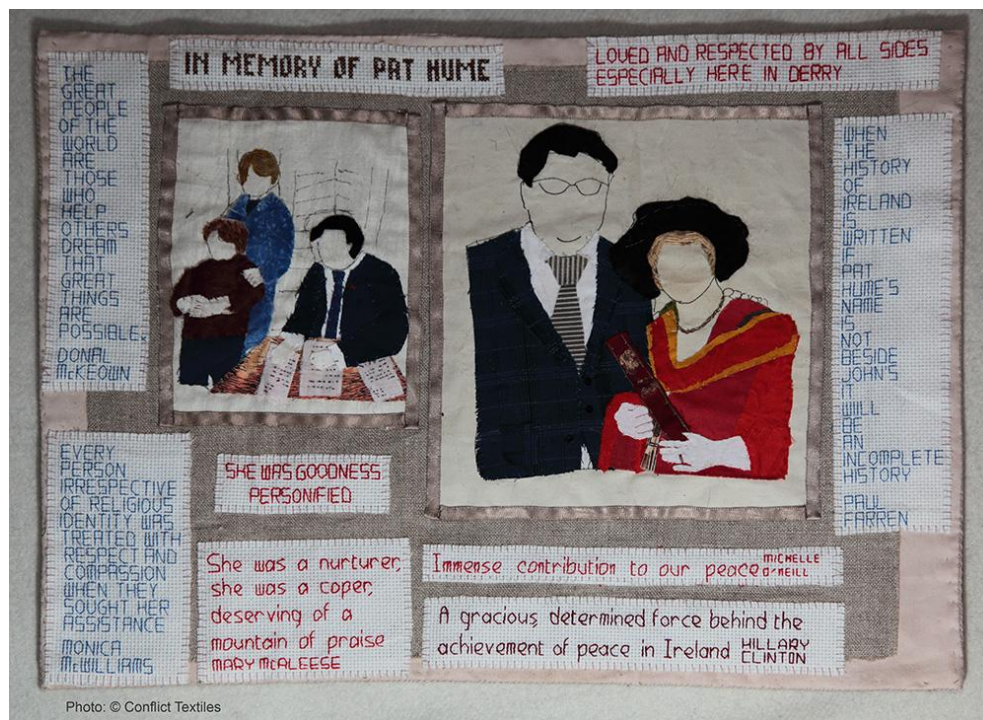 IN MEMORY OF PAT HUME
LOVED AND RESPECTED BY ALL SIDES
ESPECIALLY HERE IN DERRY
THE
GREAT
PEOPLE
OF THE
WORLD
ARE
THOSE
WHO
HELP
OTHERS
DREAM
THAT
GREAT
THINGS
ARE
POSSIBLE.
DONAL
McKEOWN
WHEN
THE
HISTORY
OF
IRELAND
IS
WRITTEN
IF
PAT
HUME'S
NAME
IS
NOT
BESIDE
JOHN'S
IT
WILL
BE
AN
INCOMPLETE
HISTORY
PAUL
FARREN
EVERY
PERSON
IRRESPECTIVE
OF RELIGIOUS
IDENTITY WAS
TREATED WITH
RESPECT AND
COMPASSION
WHEN THEY
SOUGHT HER
ASSISTANCE
MONICA
McWILLIAMS
SHE WAS GOODNESS
PERSONIFIED
She was a nurturer,
she was a coper,
deserving of a
mountain of praise
MARY McALEESE
Immense contribution to our peace MICHELLE
O'NEILL
A gracious, determined force behind the
achievement of peace in Ireland HILLARY
CLINTON
Photo: © Conflict Textiles